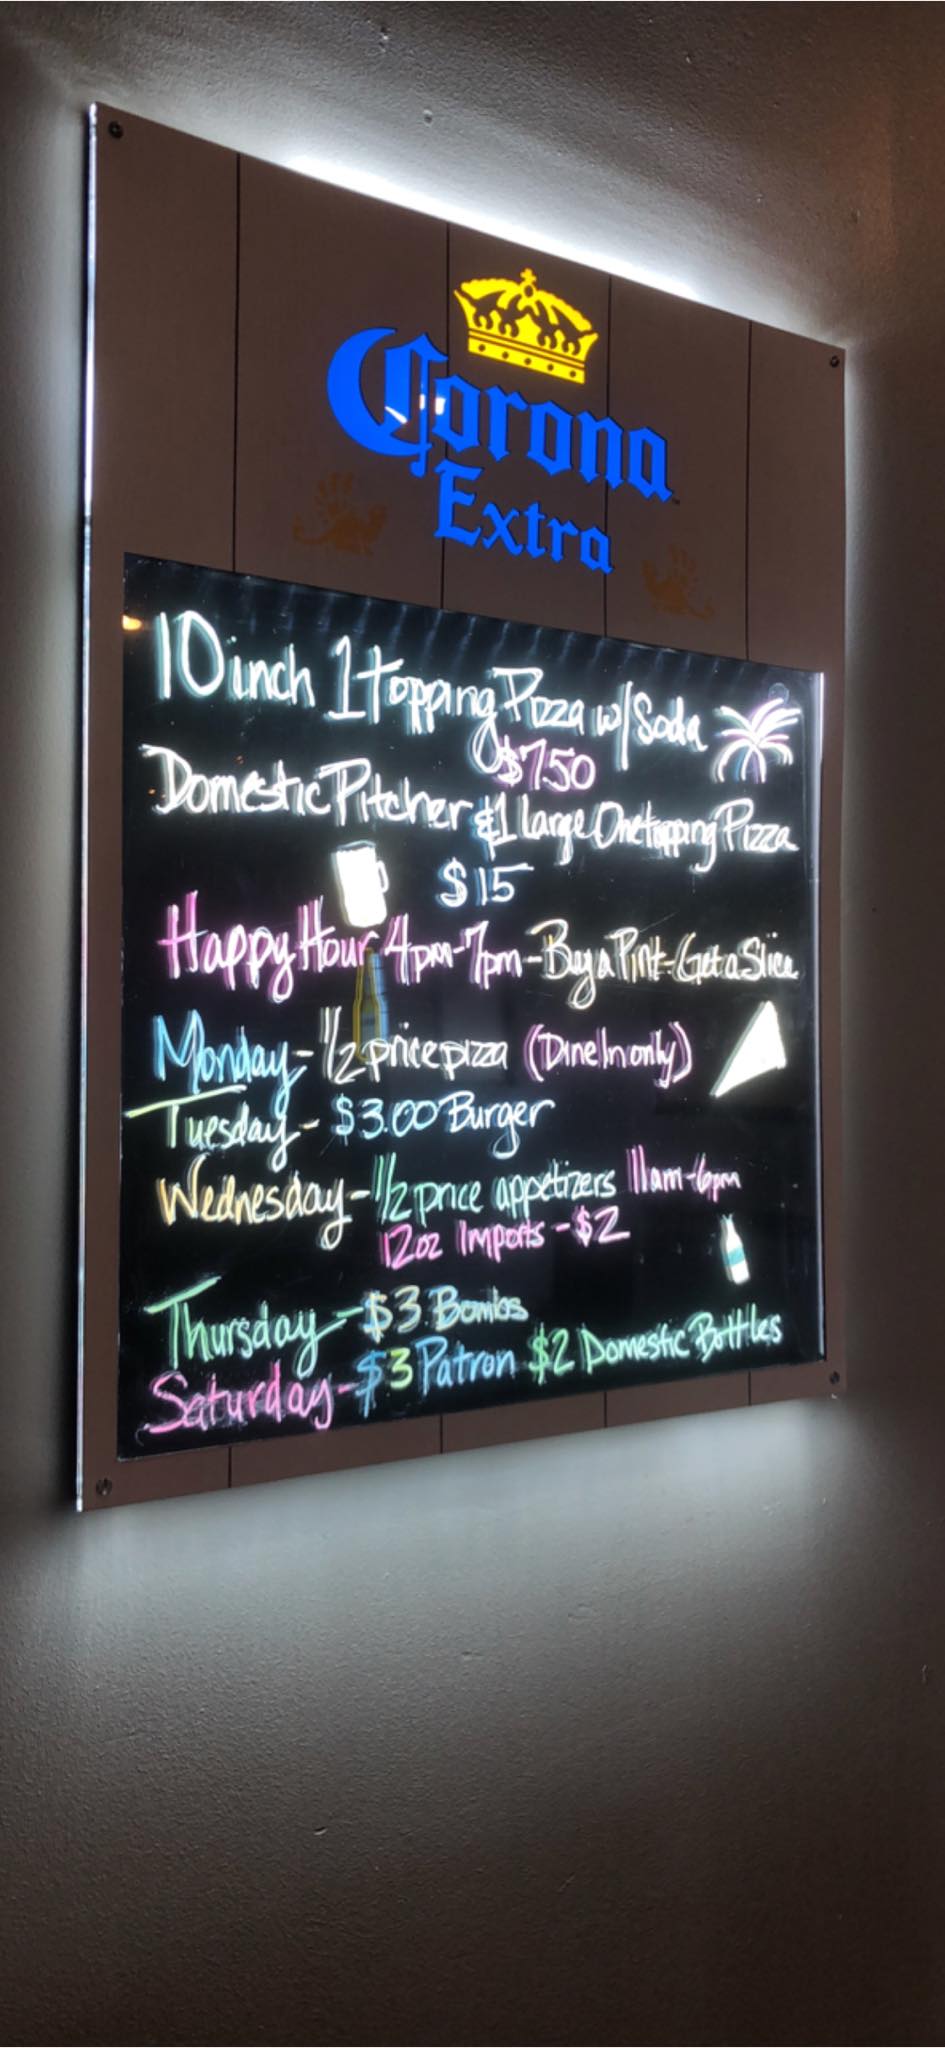 Corona
Extra
10 inch 1 Topping Pizza w/ Soda
$7.50
Domestic Pitcher & 1 large One topping Pizza
$15
Happy Hour 4pm-7pm - Buy a Pint - Get a Slice
Monday - 1/2 price pizza (Dine In only)
Tuesday - $3.00 Burger
Wednesday - 1/2 price appetizers 11am-6pm
12oz Imports - $2
Thursday - $3 Bombs
Saturday - $3 Patron $2 Domestic Bottles